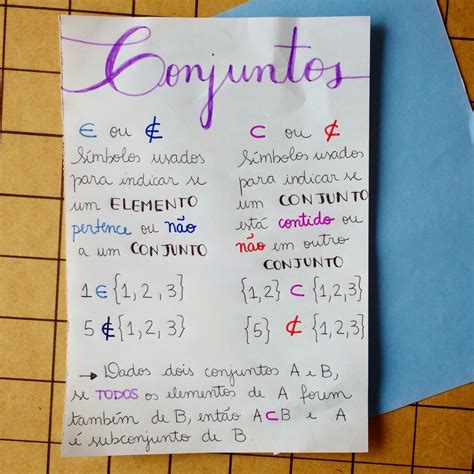 Conjuntos
∈ ou ∉
Símbolos usados
para indicar se
um ELEMENTO
pertence ou não
a um CONJUNTO
1 ∈ {1, 2, 3}
5 ∉ {1, 2, 3}
⊂ ou ⊄
Símbolos usados
para indicar se
um CONJUNTO
está contido ou
não em outro
CONJUNTO
{1,2} ⊂ {1,2,3}
{5} ⊄ {1,2,3}
→ Dados dois conjuntos A e B,
se TODOS os elementos de A forem
também de B, então A⊂B e A
é subconjunto de B.